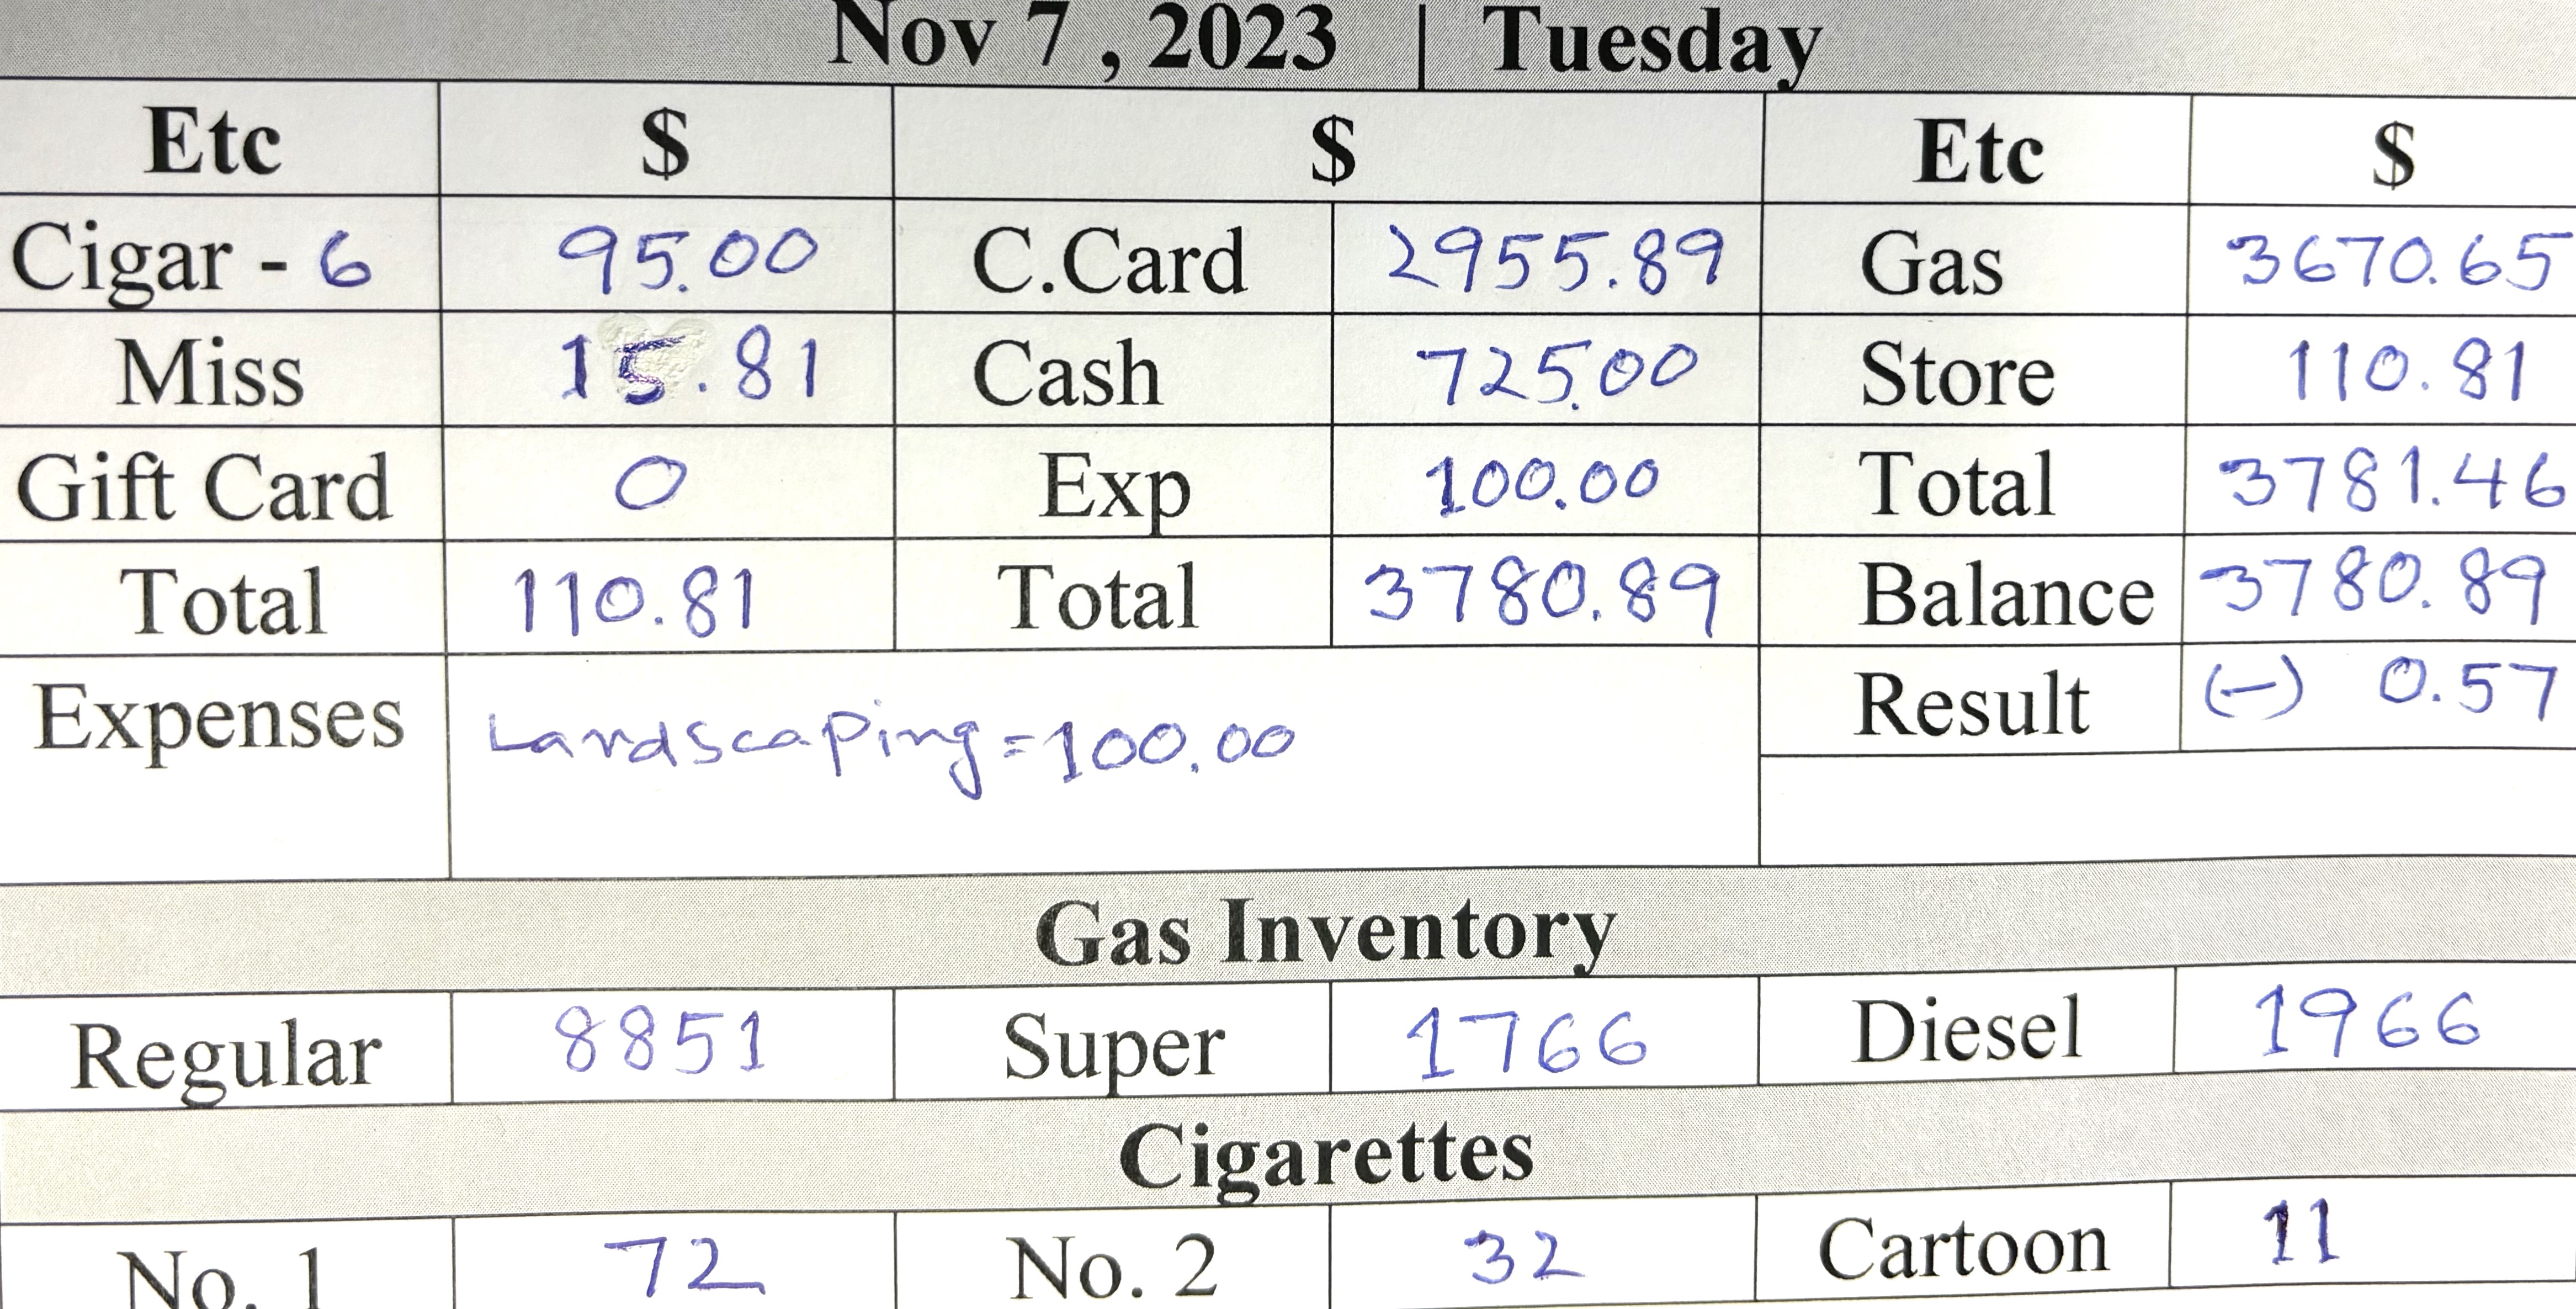 Nov 7 , 2023 | Tuesday
Etc $ $ Etc $
Cigar - 6 95.00 C.Card 2955.89 Gas 3670.65
Miss 15.81 Cash 725.00 Store 110.81
Gift Card 0 Exp 100.00 Total 3781.46
Total 110.81 Total 3780.89 Balance 3780.89
Expenses Landscaping=100.00 Result (-) 0.57
Gas Inventory
Regular 8851 Super 1766 Diesel 1966
Cigarettes
No. 1 72 No. 2 32 Cartoon 11